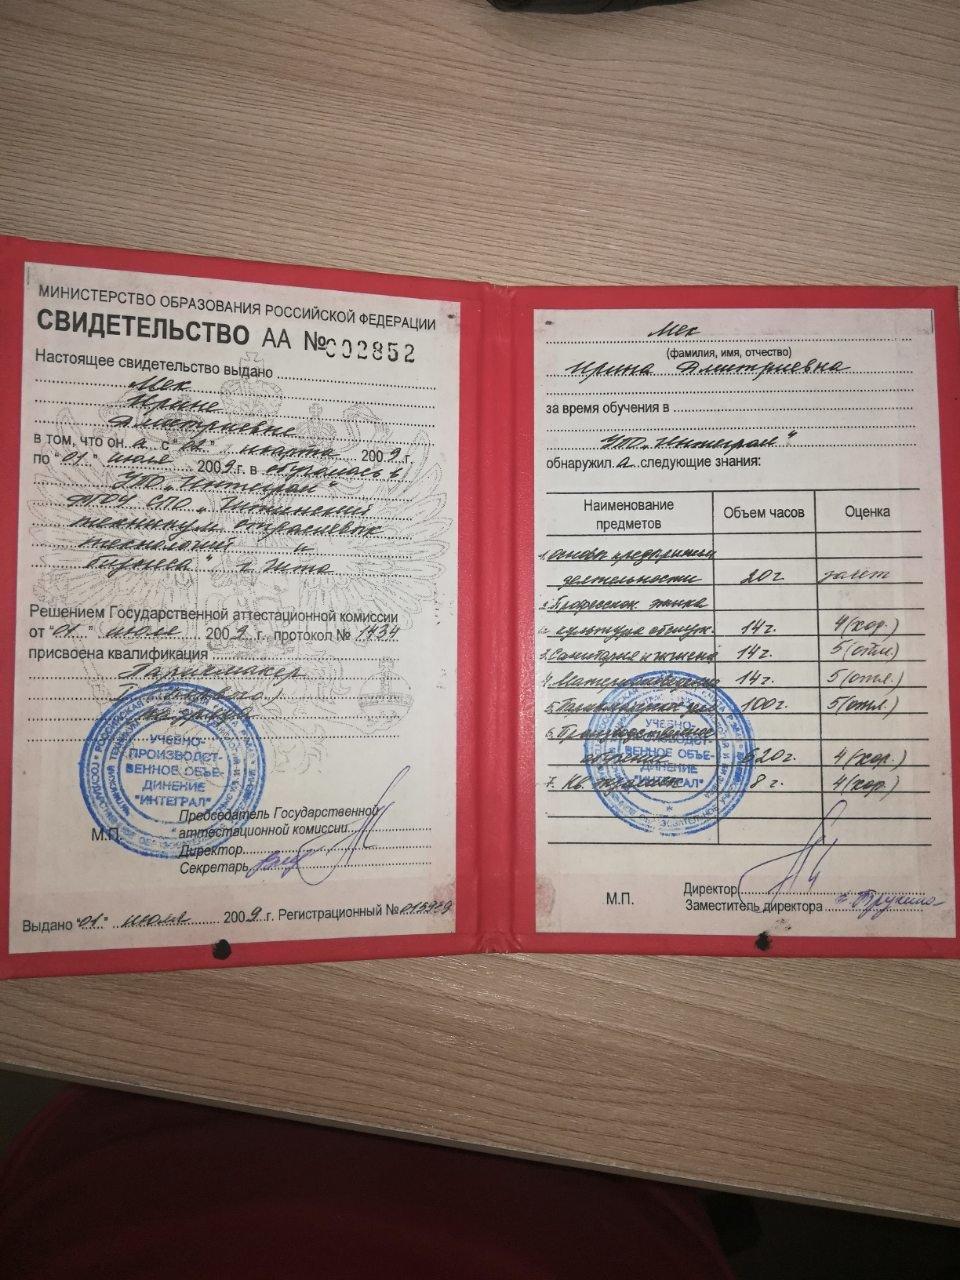 МИНИСТЕРСТВО ОБРАЗОВАНИЯ РОССИЙСКОЙ ФЕДЕРАЦИИ
СВИДЕТЕЛЬСТВО АА № 002852
Настоящее свидетельство выдано
Мех
Ирине
Дмитриевне
в том, что он а с "02" марта 2009.г.
по "01" июля 2009.г. в обучалась в
УПО "Интеграл"
ФГОУ СПО "Читинский
техникум отраслевых
технологий и
бизнеса" г. Чита
Решением Государственной аттестационной комиссии
от "01" июля 2009 г. протокол № 1434
присвоена квалификация
Парикмахер
разряда
УЧЕБНО-
ПРОИЗВОДСТ-
ВЕННОЕ ОБЪЕ-
ДИНЕНИЕ
"ИНТЕГРАЛ"
М.П.
Председатель Государственной
аттестационной комиссии
Директор
Секретарь
Выдано "01" июля 2009 г. Регистрационный №
Мех
(фамилия, имя, отчество)
Ирина Дмитриевна
за время обучения в
УПО "Интеграл"
обнаружил а следующие знания:
Наименование предметов Объем часов Оценка
1. Основы
деятельности 20г. зачет
2. Професcион. этика
и культура обслуж. 14г. 4(хор.)
3. Санитария и гигиена 14г. 5(отл.)
4. Материаловедение 14г. 5(отл.)
5. 100г. 5(отл.)
6. Производственное
обучение 620г. 4(хор.)
7. Кв. экзамен 8г. 4(хор.)
УЧЕБНО-
ПРОИЗВОДСТ-
ВЕННОЕ ОБЪЕ-
ДИНЕНИЕ
"ИНТЕГРАЛ"
М.П.
Директор
Заместитель директора